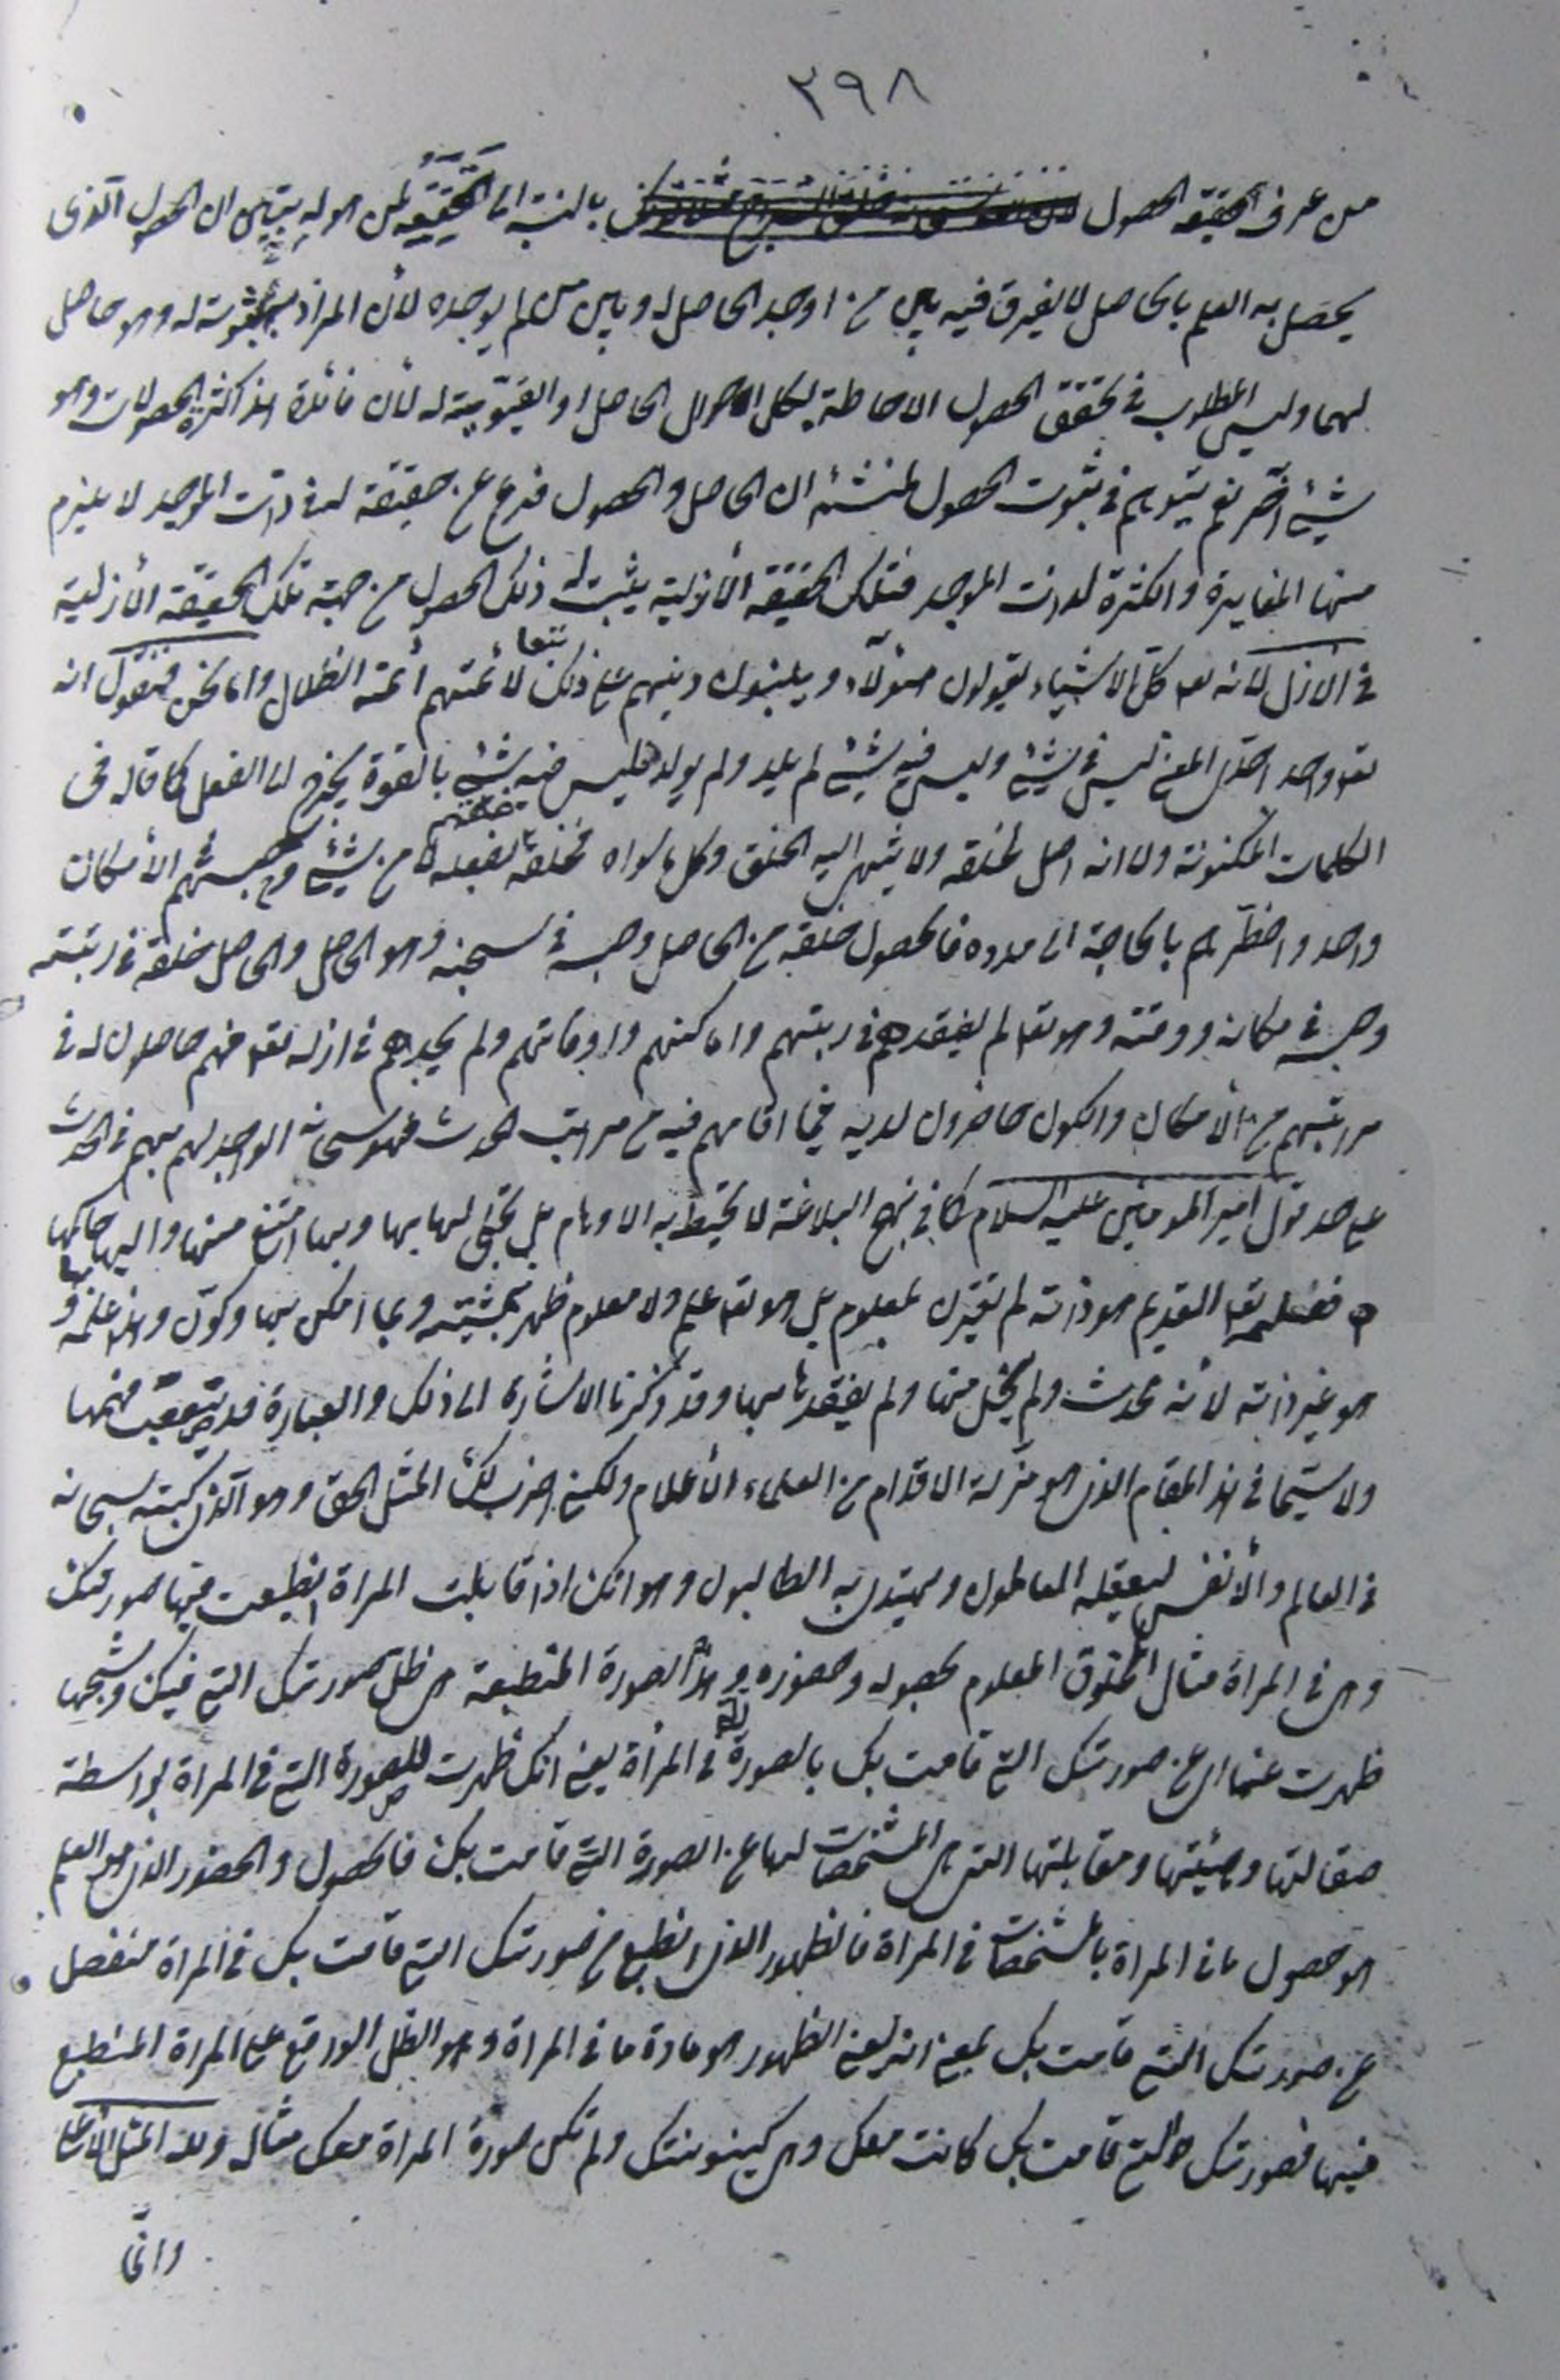 ٣٩٨
من عرف حقيقة الحصول بالنسبة الى الحقيقة لمن هو له يتبين ان الحصول الذى
يحصل به العلم بالحاصل لا يفرق فيه بين من اوجد الحاصل له وبين من لم يوجده لأن المراد ثبوته له وهو حاصل
لهما وليس المطلوب فى تحقق الحصول الاحاطة بكل احوال الحاصل او القيّوميّة له لأن فائدة هذا كثرة الحصولات وهو
شيئ آخر نعم يتوهم فى ثبوت الحصول لمنشئه ان الحاصل والحصول فرع عن حقيقة له فى ذات الموجد لا يلزم
منها المغايرة والكثرة لذات الموجد فتلك الحقيقة الأزلية يثبت له ذلك الحصول من جهة تلك الحقيقة الأزلية
فى الأزل لأنه تعا كل الاشياء يقولون هؤلاء ويبنون دينهم على ذلك تبعا لأئمتهم أئمة الضلال واما نحن فنقول انه
تعا واحد احدىّ المعنى ليس فى شيئ وليس فيه شيئ لم يلد ولم يولد فليس فيه شيئ بالقوة يخرج الى الفعل كما قاله فى
الكلمات المكنونة ولا انه اصل لخلقه ولا ينتهى اليه الخلق وكل ما سواه فخلقه بفعله لا من شيئ وحبسهم الأمكان
واحد واضطرّهم بالحاجة الى مدده فالحصول خلقه من الحاصل وحبسه فى سجنه وهو الحاصل والحاصل خلقه فى رتبته
وحبسه فى مكانه ووقته وهو تعا لم يفقدهم فى رتبتهم واماكنهم واوقاتهم ولم يجدهم فى ازله تعا فهم حاصلون له فى
مراتبهم من الأمكان والكون حاضرون لديه فيما اقامهم فيه من مراتب الحدث فهو سبحانه الواجد لهم بهم فى الحدث
على حد قول امير المومنين عليه السلام كما فى نهج البلاغة لا تحيط به الاوهام بل تجلى لها بها وبها امتنع منها واليها حاكمها
فعلمه تعا القديم هو ذاته لم يقترن بمعلوم بل هو تعا علم ولا معلوم ظهر بمشيّته وبما امكن بها وكوّن وهذا علمه بها و
هو غير ذاته لأنه محدث ولم يخل منها ولم يفقدها بها وقد ذكرنا الاشارة الى ذلك والعبارة قد يصعب فهمها
ولا سيّما فى هذا المقام الذى هو مزلة الاقدام من العلماء الأعلام ولكنى اضرب لك المثل الحق وهو الذى كتبه سبحانه
فى العالم والأنفس ليعقله العاقلون ويهتدى به الطالبون وهو انك اذا قابلت المراة انطبعت فيها صورتك
وهى فى المراة مثال المخلوق المعلوم بحصوله وحضوره وهذه الصورة المنطبعة هى ظل صورتك التى فيك وشبحها
ظهرت عنها اى عن صورتك التى قامت بك بالصورة التى فى المرأة يعنى انك ظهرت للصورة التى فى المراة بواسطة
صقالتها وهيئتها ومقابلتها التى هى المشخصات لها عن الصورة التى قامت بك فالحصول والحضور الذى هو العلم
هو حصول ما فى المراة بالمشخصات فى المراة فالظهور الذى انطبع من صورتك التى قامت بك فى المراة منفصل
عن صورتك التى قامت بك بمعنى انه يعنى الظهور هو مادة ما فى المراة وهو الظل الواقع على المراة المنطبع
فيها فصورتك التى قامت بك كانت معك وهى كينونتك ولم تكن صورة المراة معك مثاله ولله المثل الأعلى
وانّما